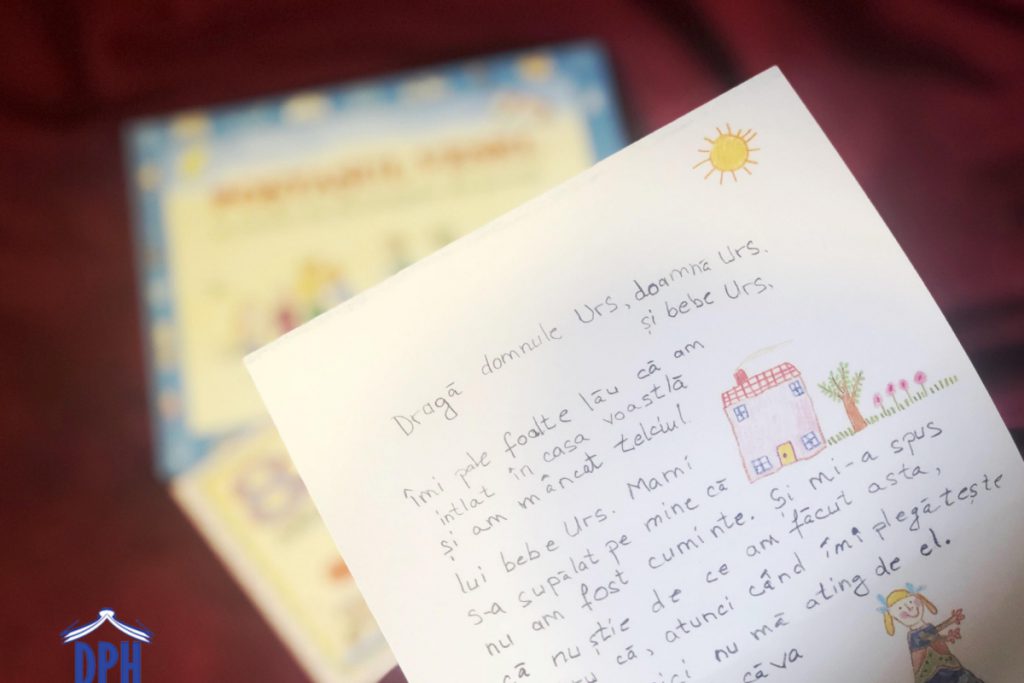 Dragă domnule Urs, doamnă Urs.
și bebe Urs.
Îmi pale foalte lău că am
intlat în casa voastlă
și am mâncat telciul
lui bebe Urs. Mami
s-a supălat pe mine că
nu am fost cuminte. Și mi-a spus
că nu știe de ce am făcut asta,
că, atunci când îmi plegătește
nu mă ating de el.
că va
DPH